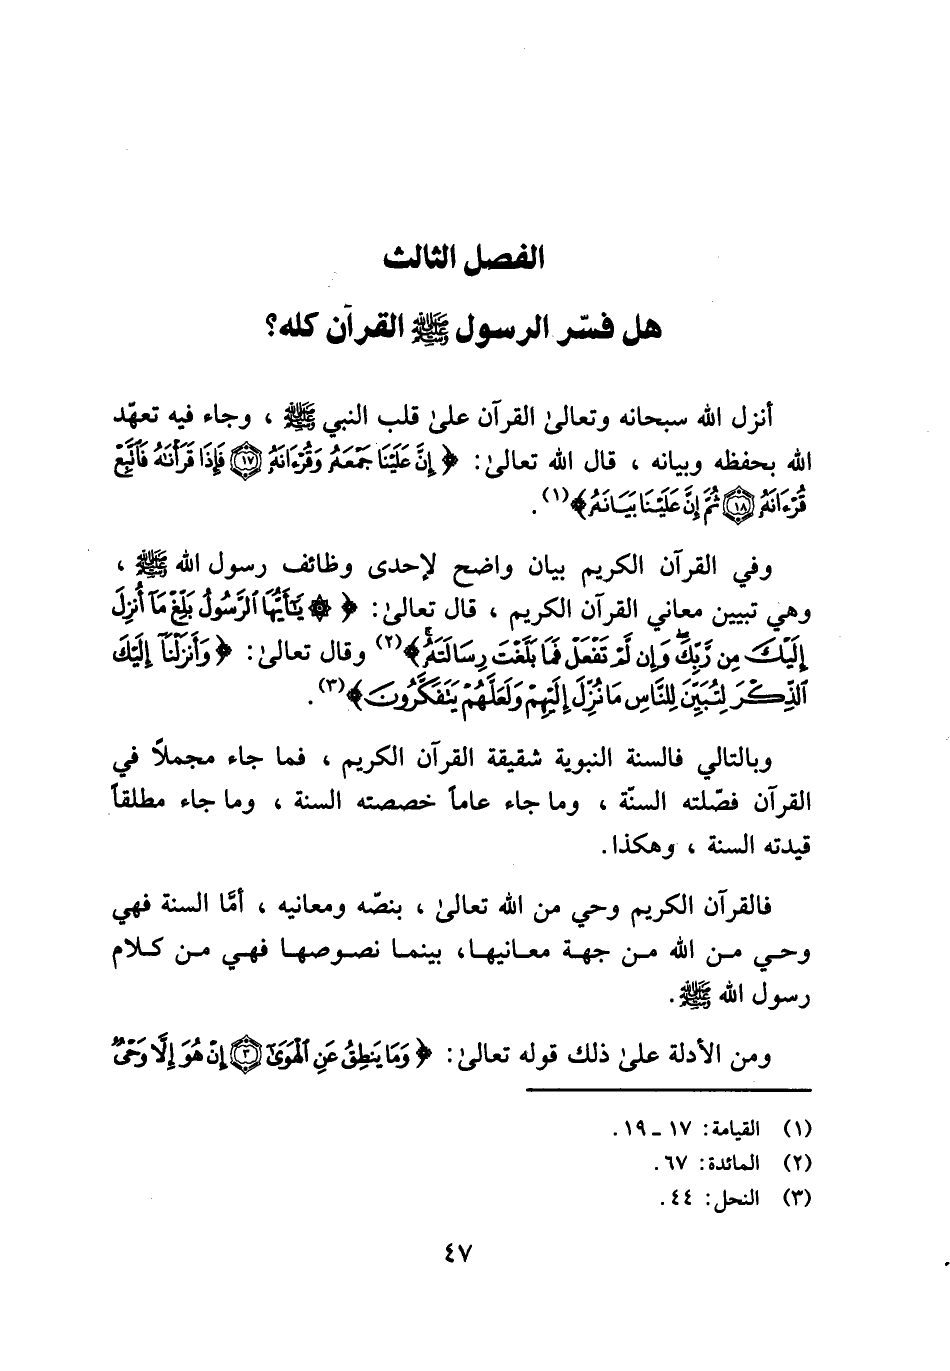 الفصل الثالث
هل فسّر الرسول ﷺ القرآن كله؟
أنزل الله سبحانه وتعالىٰ القرآن علىٰ قلب النبي ﷺ ، وجاء فيه تعهّد
الله بحفظه وبيانه ، قال الله تعالىٰ: ﴿ إِنَّ عَلَيْنَا جَمْعَهُۥ وَقُرْءَانَهُۥ ۝١٧ فَإِذَا قَرَأْنَٰهُ فَٱتَّبِعْ
قُرْءَانَهُۥ ۝١٨ ثُمَّ إِنَّ عَلَيْنَا بَيَانَهُۥ﴾(١).
وفي القرآن الكريم بيان واضح لإحدى وظائف رسول الله ﷺ ،
وهي تبيين معاني القرآن الكريم ، قال تعالىٰ: ﴿ ۞ يَٰٓأَيُّهَا ٱلرَّسُولُ بَلِّغْ مَآ أُنزِلَ
إِلَيْكَ مِن رَّبِّكَۖ وَإِن لَّمْ تَفْعَلْ فَمَا بَلَّغْتَ رِسَالَتَهُۥۚ﴾(٢) وقال تعالىٰ: ﴿ وَأَنزَلْنَآ إِلَيْكَ
ٱلذِّكْرَ لِتُبَيِّنَ لِلنَّاسِ مَا نُزِّلَ إِلَيْهِمْ وَلَعَلَّهُمْ يَتَفَكَّرُونَ﴾(٣).
وبالتالي فالسنة النبوية شقيقة القرآن الكريم ، فما جاء مجملاً في
القرآن فصّلته السنّة ، وما جاء عاماً خصصته السنة ، وما جاء مطلقاً
قيدته السنة ، وهكذا.
فالقرآن الكريم وحي من الله تعالىٰ ، بنصّه ومعانيه ، أمَّا السنة فهي
وحي من الله من جهة معانيها، بينما نصوصها فهي من كلام
رسول الله ﷺ.
ومن الأدلة علىٰ ذلك قوله تعالىٰ: ﴿ وَمَا يَنطِقُ عَنِ ٱلْهَوَىٰٓ ۝٣ إِنْ هُوَ إِلَّا وَحْىٌ
(١) القيامة: ١٧ ـ ١٩.
(٢) المائدة: ٦٧.
(٣) النحل: ٤٤.
٤٧